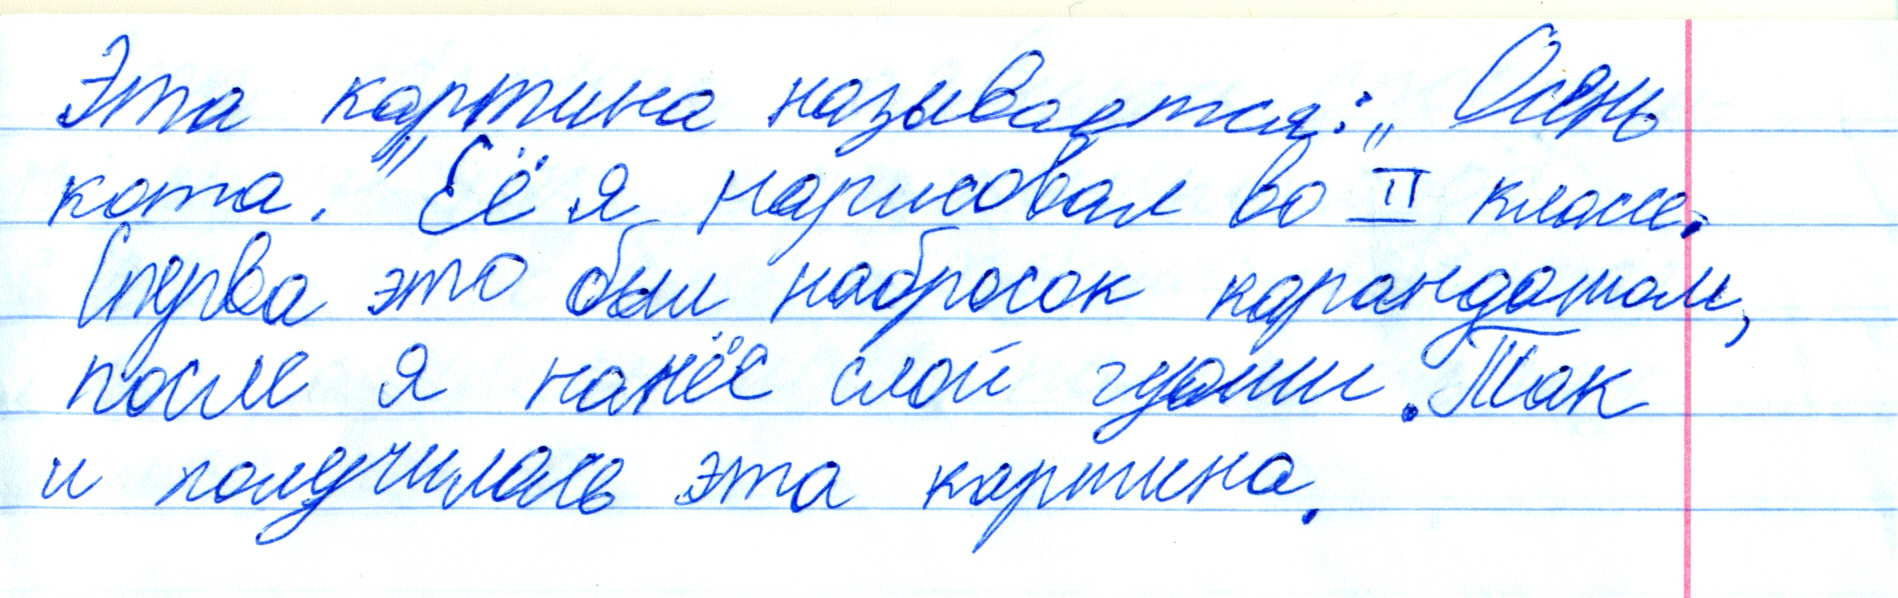 Эта картина называется: „Осень
кота.” Её я нарисовал во II классе.
Сперва это был набросок карандашом,
после я нанёс слой гуаши. Так
и получилась эта картина.